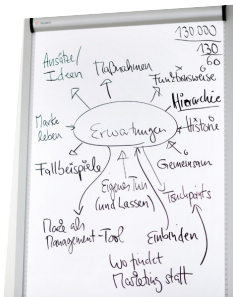 130.000
130
60
Ansätze/
Ideen
Maßnahmen
Funktionsweise
Hierarchie
Marke
leben
Erwartungen
Historie
Fallbeispiele
Gemeinsam
Eigenes Tun
(und Lassen)
Touchpoints
Marke als
Management-Tool
Einbinden
Wo findet
Marketing statt